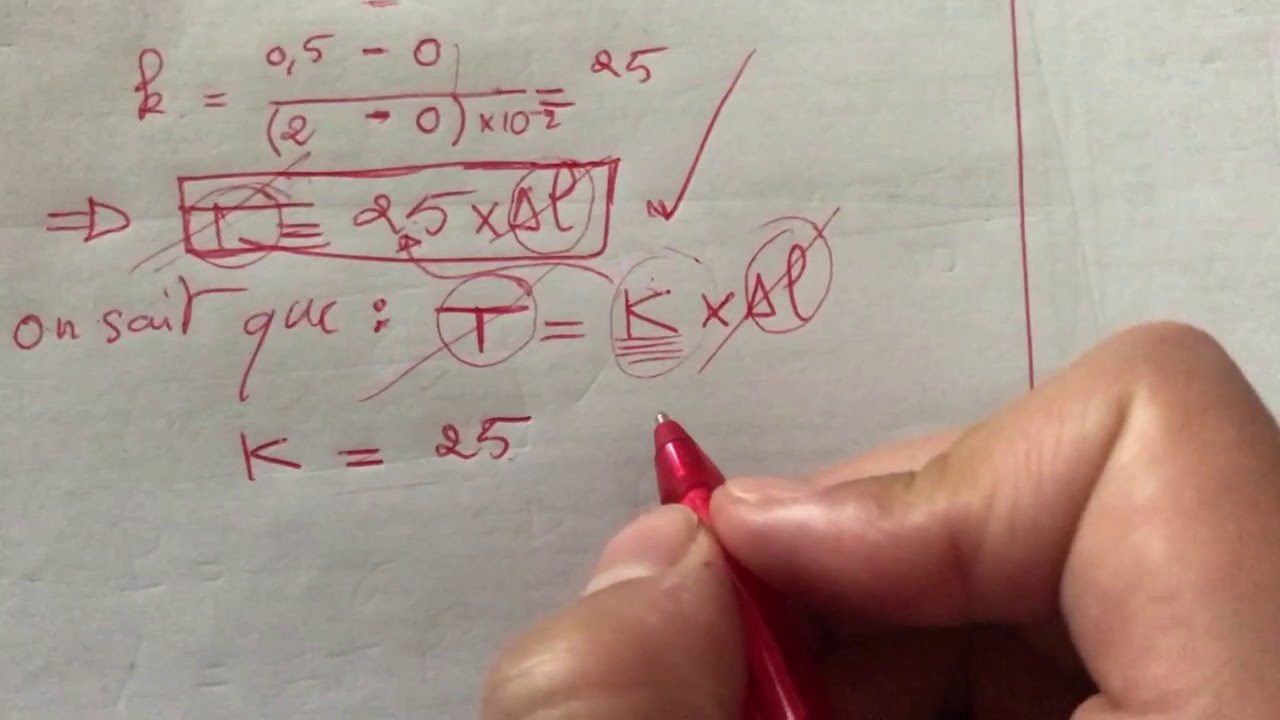 k = 0,5 - 0 / (2 - 0) × 10⁻² = 25
⇒ T = 25 × Δl
on sait que : T = K × Δl
K = 25